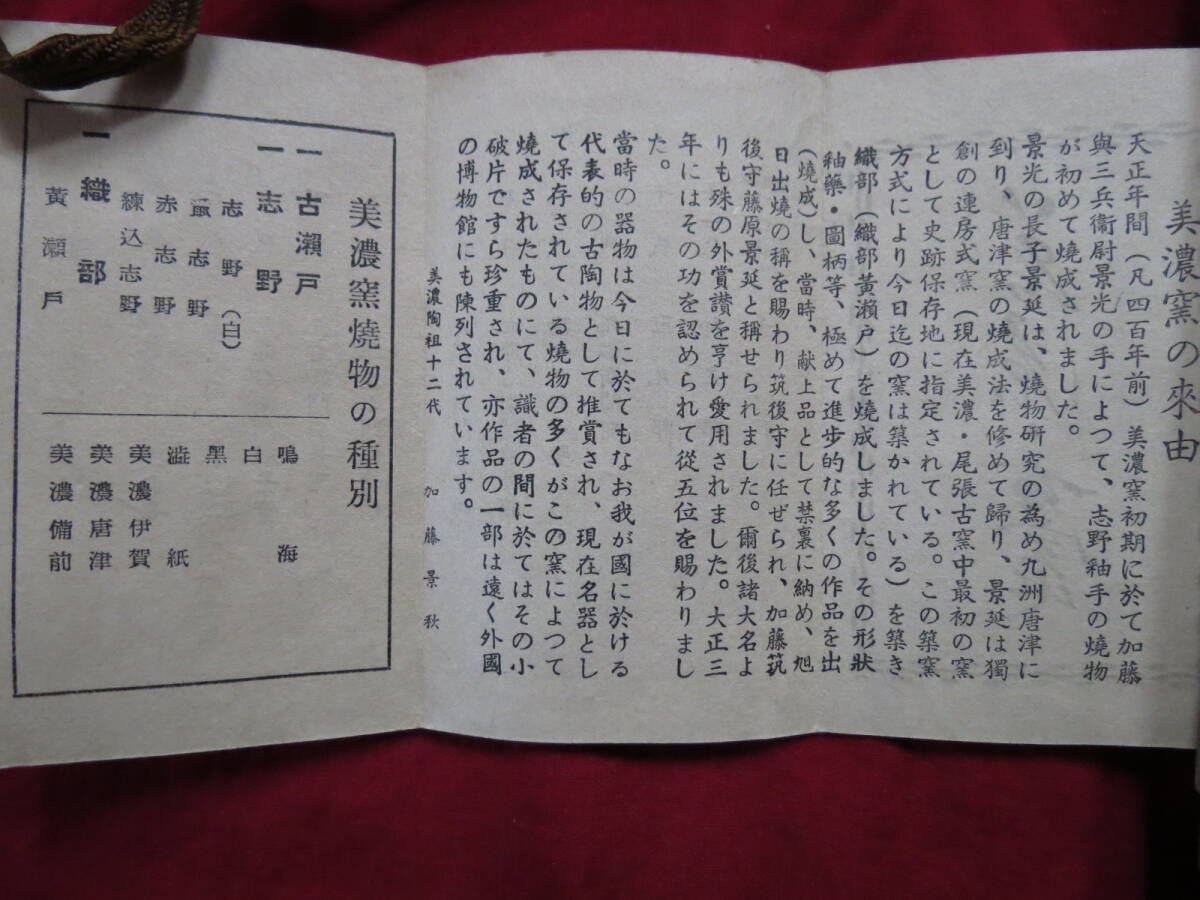 美濃窯の來由
天正年間（凡四百年前）美濃窯初期に於て加藤
與三兵衞尉景光の手によつて、志野釉手の燒物
が初めて燒成されました。
景光の長子景延は、燒物研究の為め九洲唐津に
到り、唐津窯の燒成法を修めて歸り、景延は獨
創の連房式窯（現在美濃・尾張古窯中最初の窯
として史跡保存地に指定されている。この築窯
方式により今日迄の窯は築かれている）を築き
織部（織部黃瀨戸）を燒成しました。その形狀
釉藥・圖柄等、極めて進步的な多くの作品を出
（燒成）し、當時、献上品として禁裏に納め、旭
日出燒の稱を賜わり筑後守に任ぜられ、加藤筑
後守藤原景延と稱せられました。爾後諸大名よ
りも殊の外賞讚を亨け愛用されました。大正三
年にはその功を認められて從五位を賜わりまし
た。
當時の器物は今日に於てもなお我が國に於ける
代表的の古陶物として推賞され、現在名器とし
て保存されている燒物の多くがこの窯によつて
燒成されたものにて、識者の間に於てはその小
破片ですら珍重され、亦作品の一部は遠く外國
の博物館にも陳列されています。
美濃陶祖十二代 加藤景秋
美濃窯燒物の種別
一 古瀨戸
一 志野
志野（白）
鼠志野
赤志野
練込志野
一 織部
黃瀨戸
鳴海
白
黑
澁紙
美濃伊賀
美濃唐津
美濃備前